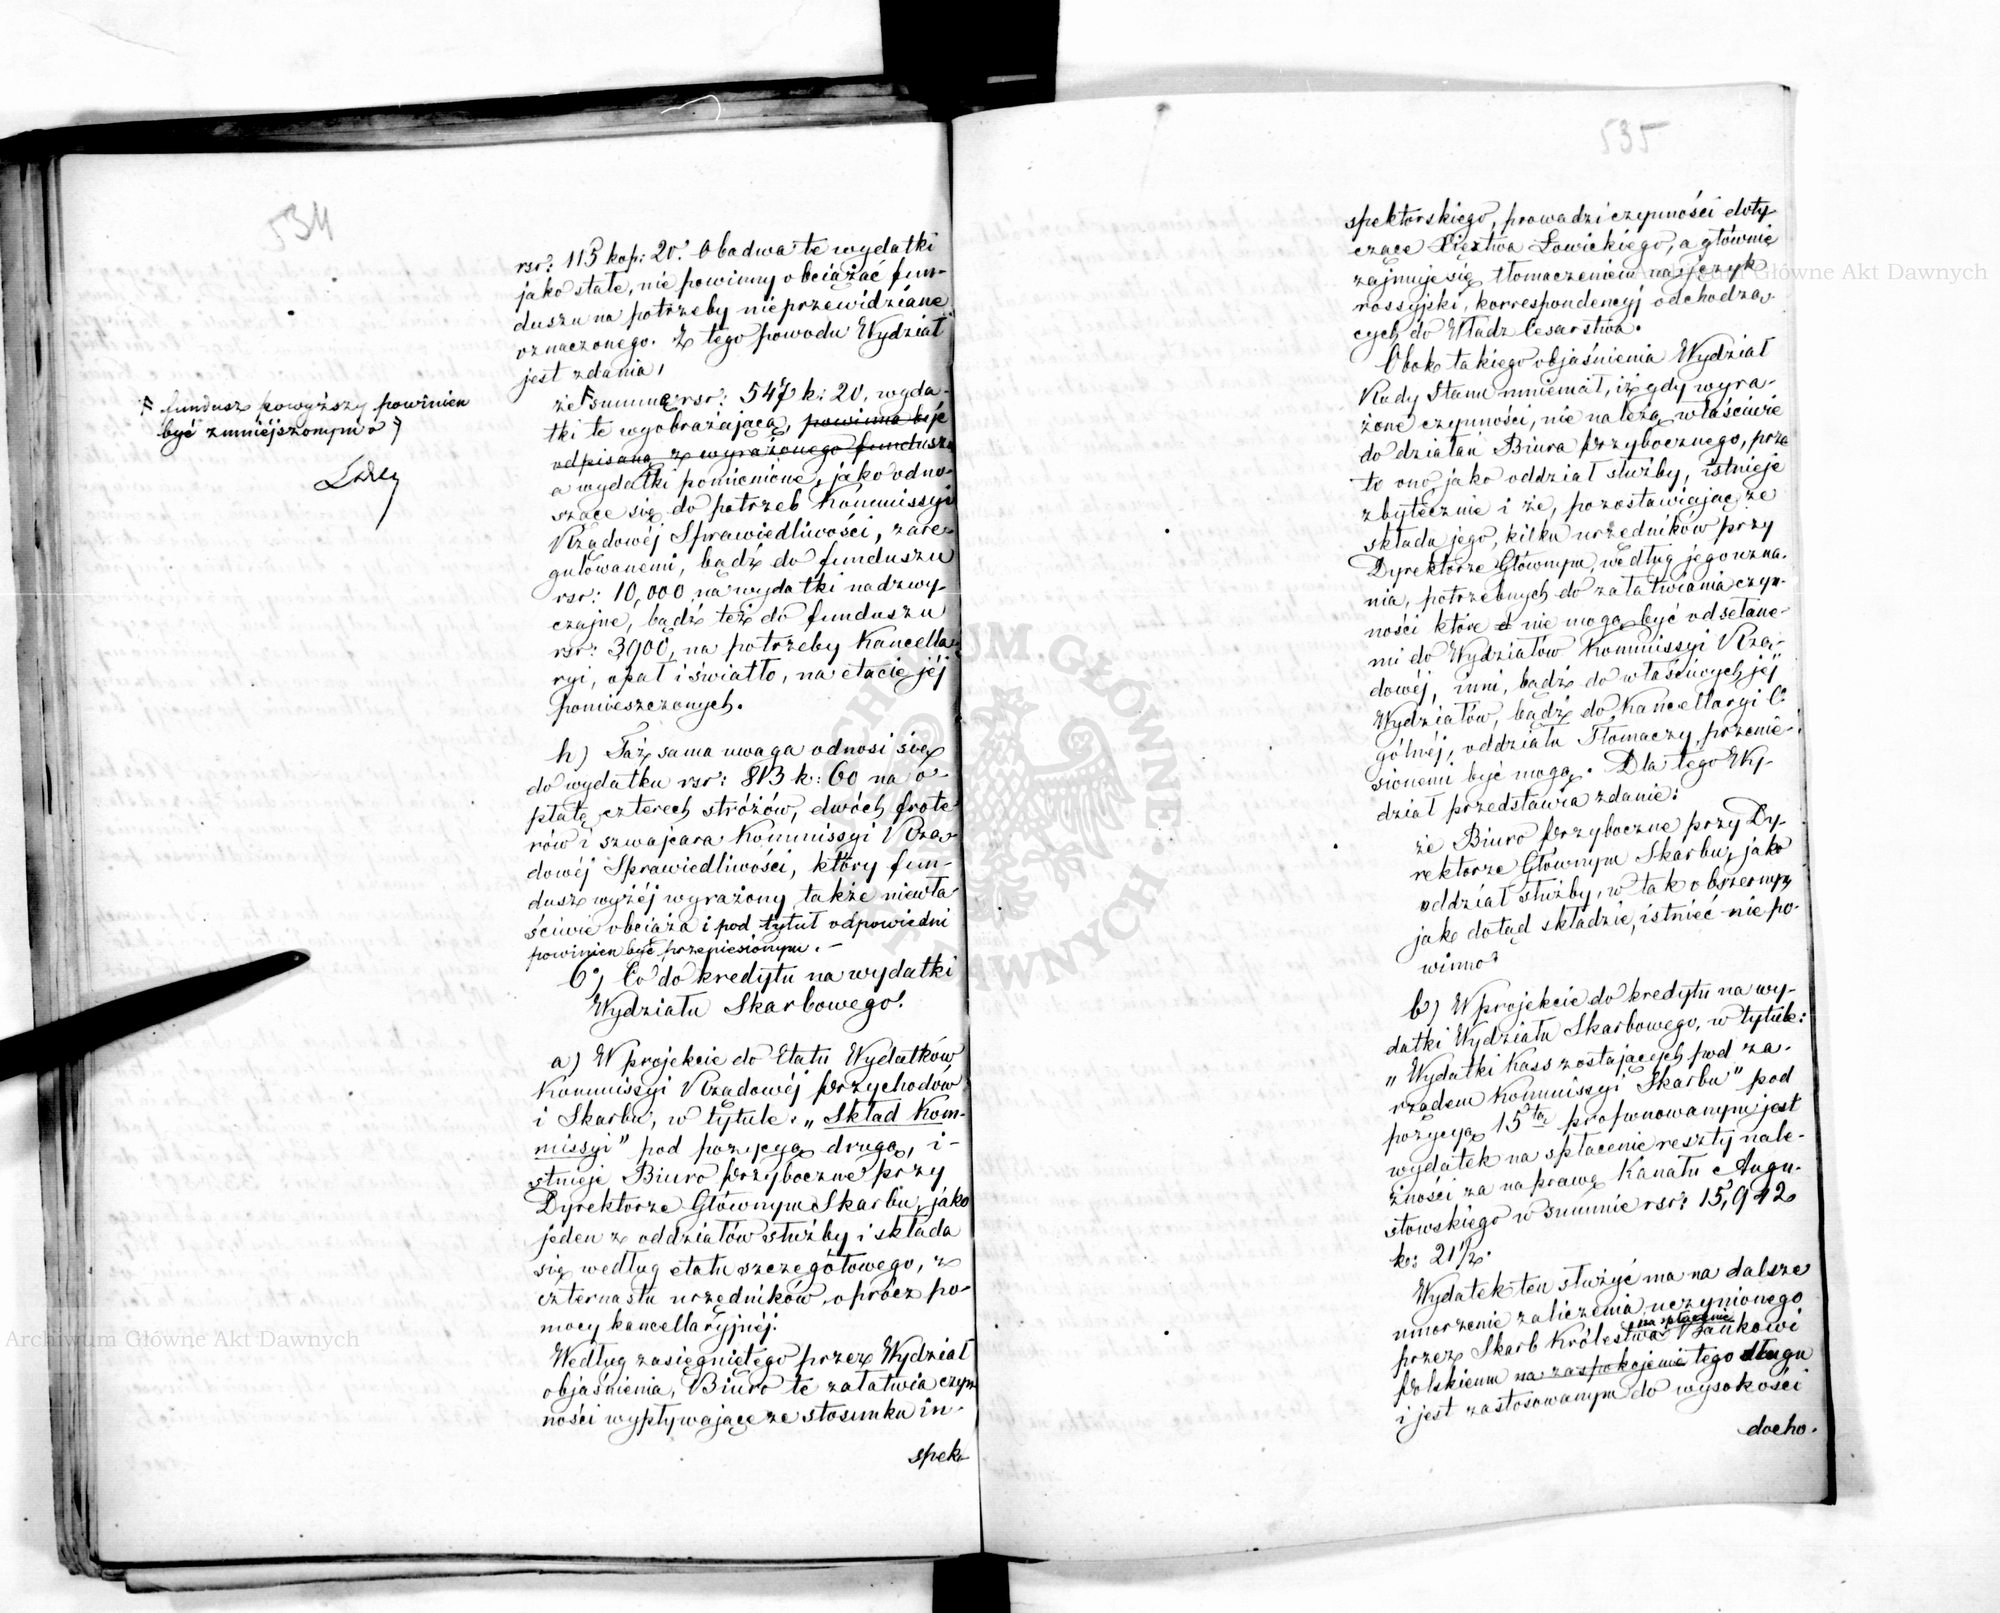 534
rsr: 113 kop: 20. Obadwa te wydatki
jako stałe, nie powinny obciążać fun-
duszu na potrzeby nieprzewidziane
oznaczonego. Z tego powodu Wydział
jest zdania,
że summę rsr: 547 k: 20, wyda-
tki te wyobrażającą, powinna być
odpisaną z wyrażonego funduszu
a wydatki pomienione, jako odno-
szące się do potrzeb Kommissyi
Rządowéj Sprawiedliwości, zare-
gulowanemi, bądź do funduszu
rsr: 10,000 na wydatki nadzwy-
czajne, bądź też do funduszu
rsr: 3900, na potrzeby Kancella-
ryi, opał i światło, na etacie jéj
pomieszczonych.
h) Taż sama uwaga odnosi się
do wydatku rsr: 813 k: 60 na o-
płatę czterech stróżów, dwóch frote-
rów i szwajcara Kommissyi Rzą-
dowéj Sprawiedliwości, który fun-
dusz wyżéj wyrażony także niewła-
ściwie obciąża i pod tytuł odpowiedni
powinien być przeniesionym. –
6°) Co do kredytu na wydatki
Wydziału Skarbowego.
a) W projekcie do Etatu Wydatków
Kommissyi Rządowéj Przychodów
i Skarbu, w tytule: „Skład Kom-
missyi" pod pozycyą drugą, i-
stnieje Biuro Przyboczne przy
Dyrektorze Głównym Skarbu, jako
jeden z oddziałów służby i składa
się według etatu szczegółowego, z
czternastu urzędników, oprócz po-
mocy kancellaryjnéj.
Według zasięgniętego przez Wydział
objaśnienia, Biuro te załatwia czyn-
ności wypływające ze stosunku in-
spek-
fundusz powyższy powinien
być zmniejszonym o
535
spektorskiego, prowadzi czynności doty-
czące Xięztwa Łowickiego, a głównie
zajmuje się tłomaczeniem na język
rossyjski, korrespondencyj odchodzą-
cych do Władz Cesarstwa.
Obok takiego objaśnienia Wydział
Rady Stanu mniemał, iż gdy wyra-
żone czynności, nie należą właściwie
do działań Biura Przybocznego, prze-
to ono, jako oddział służby, istnieje
zbytecznie i że, pozostawiając ze
składu jego, kilku urzędników przy
Dyrektorze Głównym, według jego uzna-
nia, potrzebnych do załatwiania czyn-
ności które nie mogą być odsełane-
mi do Wydziałów Kommissyi Rzą-
dowéj, inni, bądź do właściwych jéj
Wydziałów, bądź do Kancellaryi O-
gólnéj, oddziału Tłomaczy, przenie-
sionemi być mogą. Dla tego Wy-
dział przedstawia zdanie:
że Biuro Przyboczne przy Dy-
rektorze Głównym Skarbu, jako
oddział służby, w tak obszernym
jak dotąd składzie, istnieć nie po-
winno.
b) W projekcie do kredytu na wy-
datki Wydziału Skarbowego, w tytule:
„Wydatki Kass zostających pod za-
rządem Kommissyi Skarbu" pod
pozycyą 15tą proponowanym jest
wydatek na spłacenie reszty nale-
żności za naprawę Kanału Augu-
stowskiego w summie rsr: 15,942
k: 21½.
Wydatek ten służyć ma na dalsze
umorzenie zaliczenia uczynionego
przez Skarb Królestwa na spłacenie Bankowi
Polskiemu na zaspokojenie tego długu
i jest zastosowanym do wysokości
docho-
ARCHIWUM GŁÓWNE AKT DAWNYCH
Archiwum Główne Akt Dawnych
Archiwum Główne Akt Dawnych